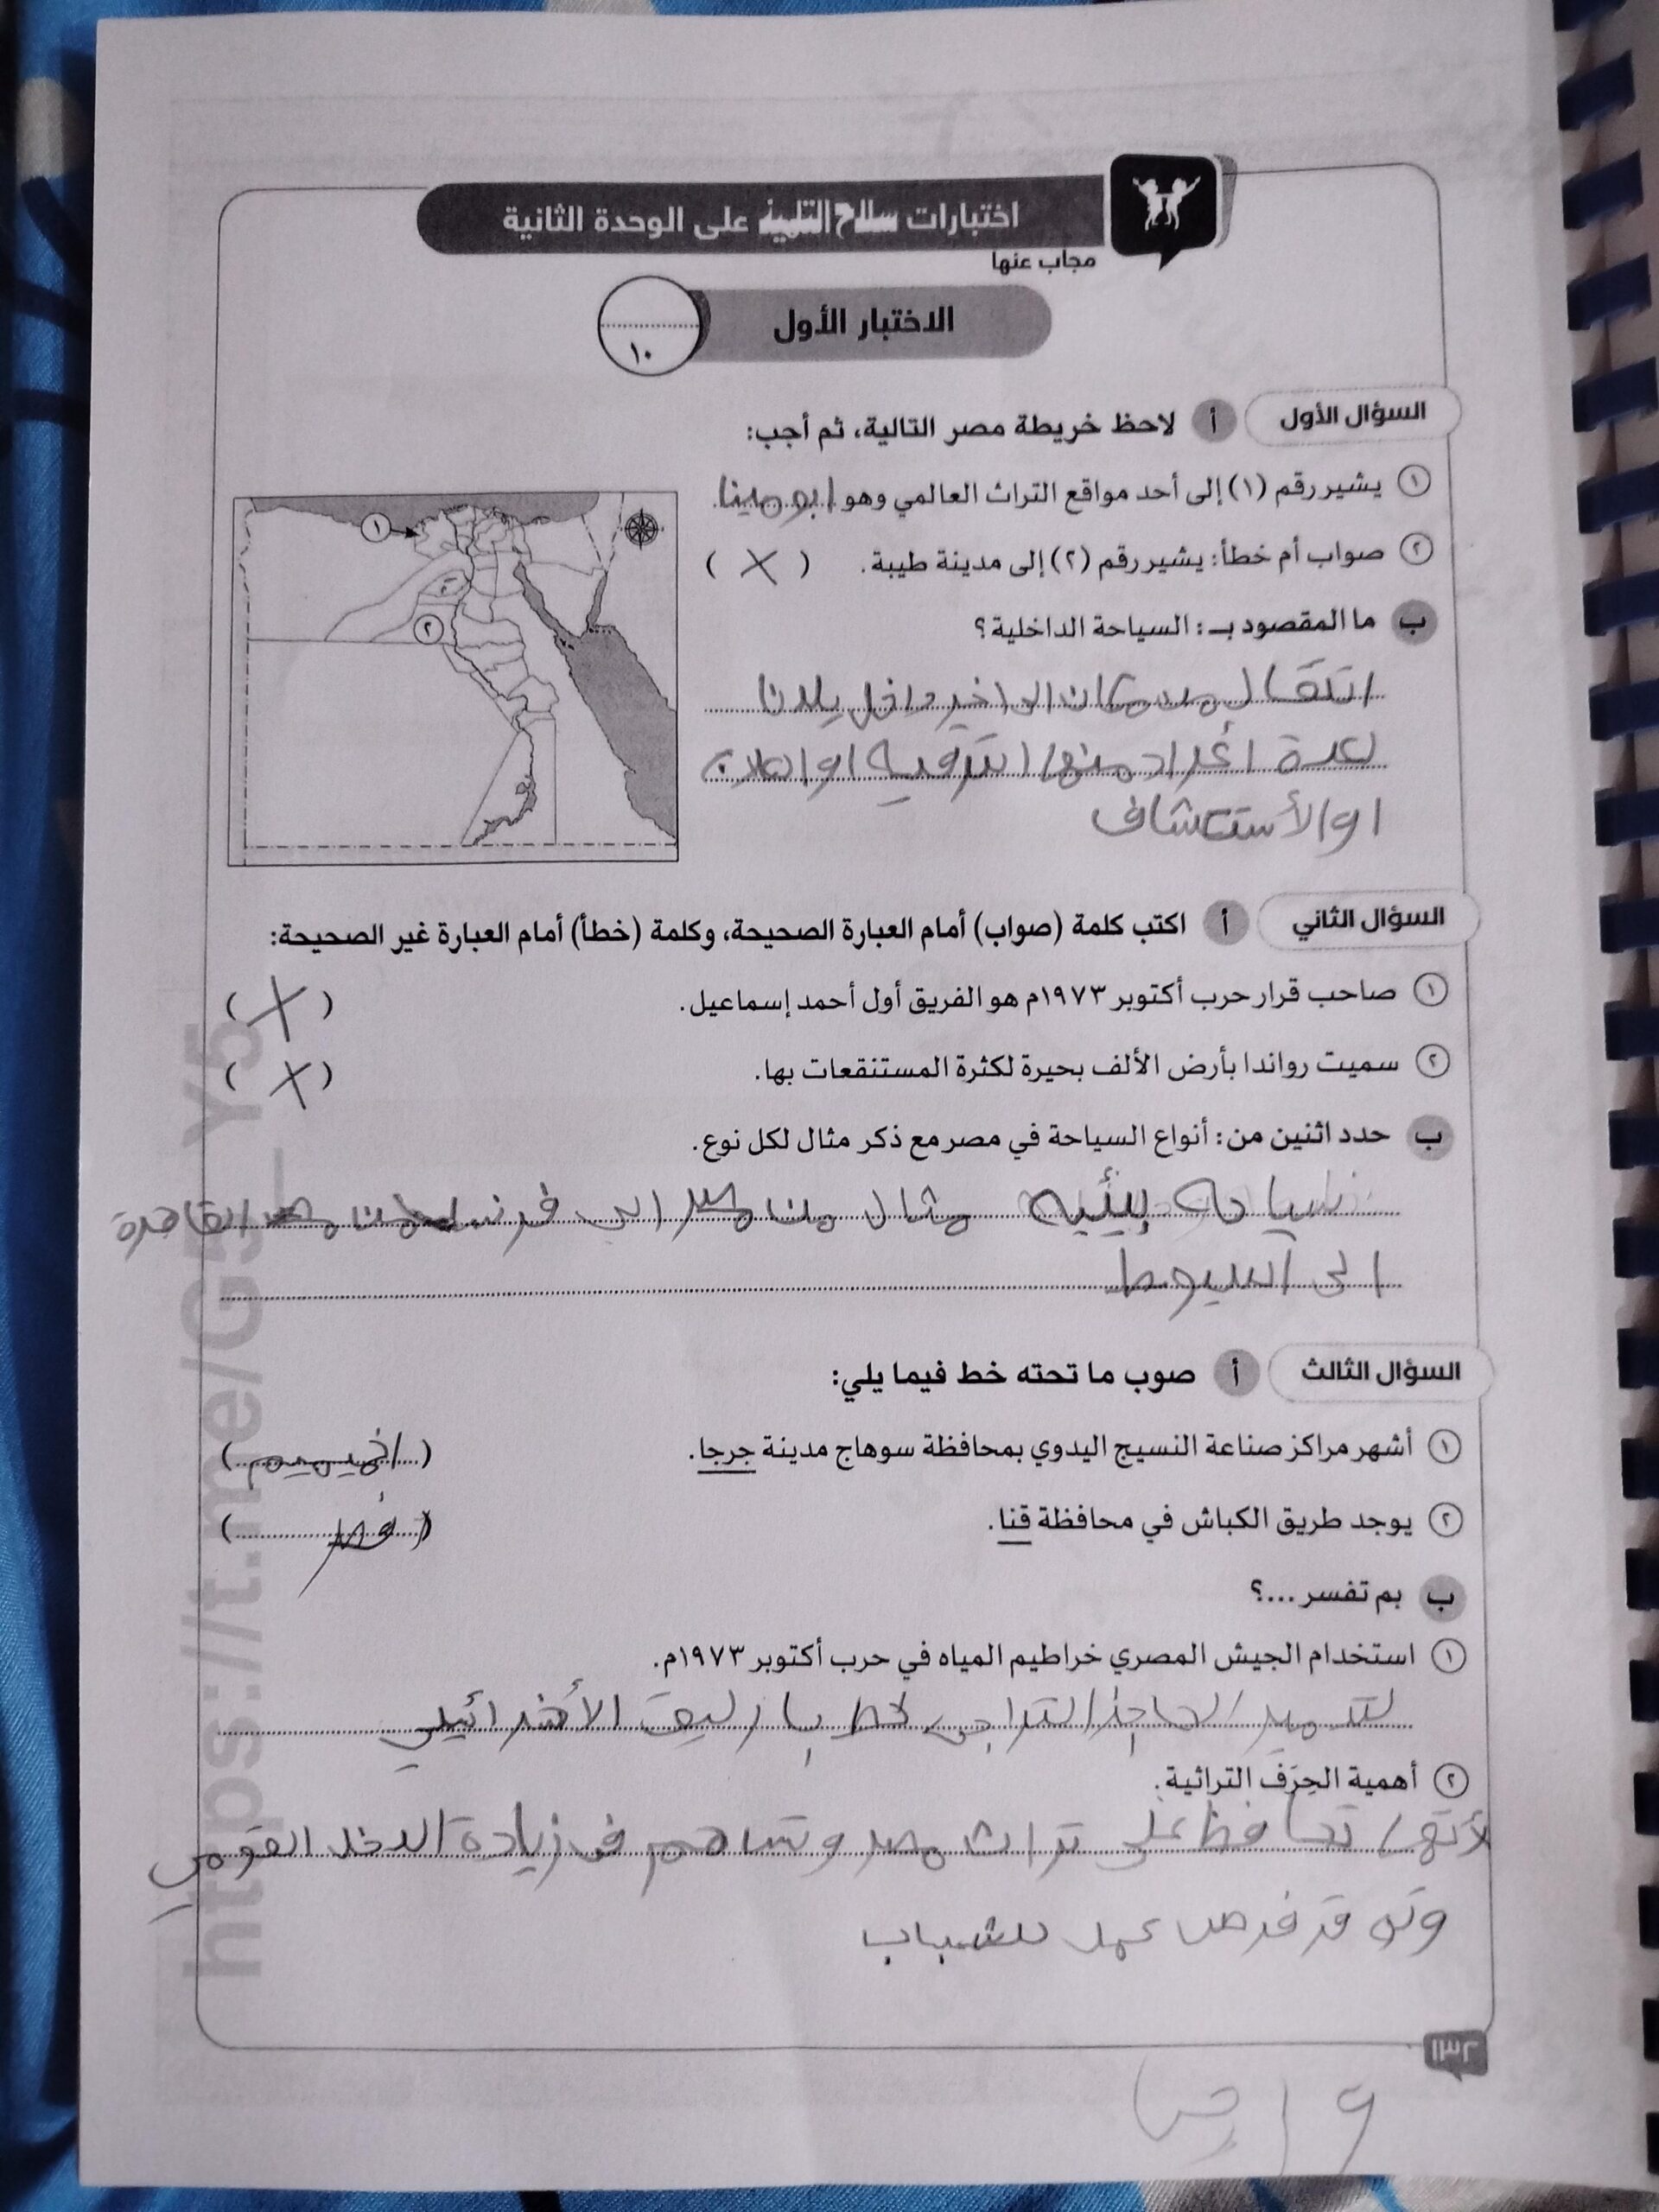 اختبارات سلاح التلميذ على الوحدة الثانية
مجاب عنها
الاختبار الأول
١٠
السؤال الأول أ لاحظ خريطة مصر التالية، ثم أجب:
١ يشير رقم (١) إلى أحد مواقع التراث العالمي وهو ابو مينا
٢ صواب أم خطأ: يشير رقم (٢) إلى مدينة طيبة. ( X )
١
٢
ب ما المقصود بـ: السياحة الداخلية؟
انتقال من مكان الى اخير داخل بلدنا
لعدة اغراد منها الترفيه او العلاج
او الأستكشاف
السؤال الثاني أ اكتب كلمة (صواب) أمام العبارة الصحيحة، وكلمة (خطأ) أمام العبارة غير الصحيحة:
١ صاحب قرار حرب أكتوبر ١٩٧٣م هو الفريق أول أحمد إسماعيل. ( X )
٢ سميت رواندا بأرض الألف بحيرة لكثرة المستنقعات بها. ( X )
ب حدد اثنين من: أنواع السياحة في مصر مع ذكر مثال لكل نوع.
سياحه بيأيه مثال من مصر الى فرنسا القاهرة
الى اسيوط
السؤال الثالث أ صوب ما تحته خط فيما يلي:
١ أشهر مراكز صناعة النسيج اليدوي بمحافظة سوهاج مدينة جرجا. (اخميم)
٢ يوجد طريق الكباش في محافظة قنا. ( )
ب بم تفسر ...؟
١ استخدام الجيش المصري خراطيم المياه في حرب أكتوبر ١٩٧٣م.
لتدمير الحاجز التراجى خط بارليف الأسرائيلي
٢ أهمية الحِرَف التراثية.
لأنها تحافظ على تراث مصر وتساهم فى زيادة الدخل القومي
وتوفر فرص عمل للشباب
١٣٢
https://t.me/G5_Y5